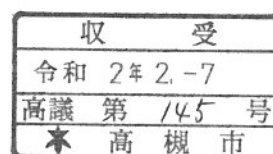 収 受
令和 2年 2.-7
高議 第 145 号
★ 高槻市